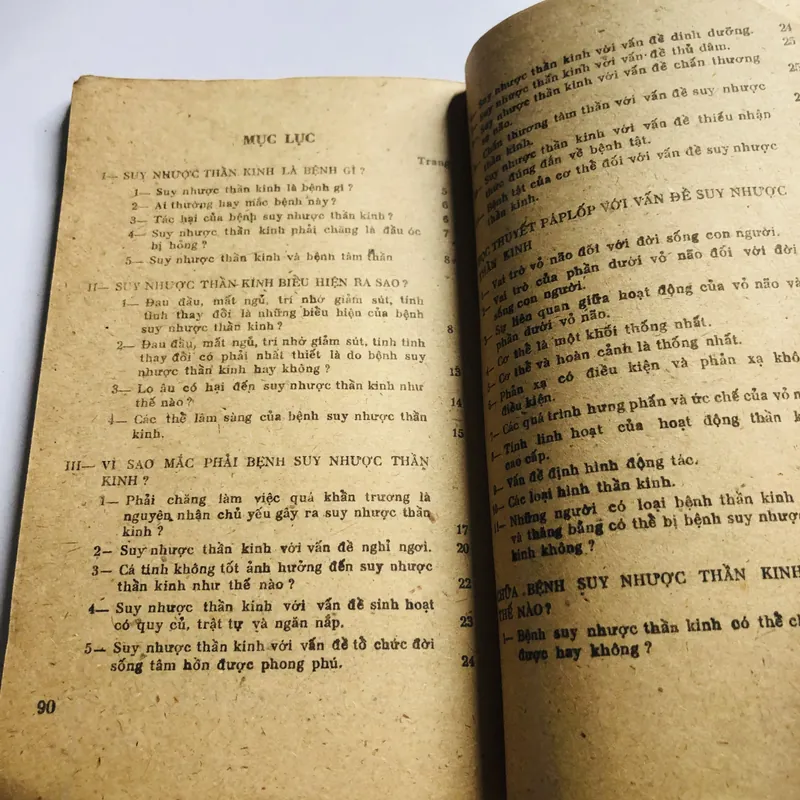 MỤC LỤC
Trang
I— SUY NHƯỢC THẦN KINH LÀ BỆNH GÌ ?
1— Suy nhược thần kinh là bệnh gì ? 5
2— Ai thường hay mắc bệnh này ? 6
3— Tác hại của bệnh suy nhược thần kinh ? 6
4— Suy nhược thần kinh phải chăng là đầu óc 7
bị hỏng ?
5— Suy nhược thần kinh và bệnh tâm thần 8
II— SUY NHƯỢC THẦN KINH BIỂU HIỆN RA SAO ?
1— Đau đầu, mất ngủ, trí nhớ giảm sút, tính
tình thay đổi là những biểu hiện của bệnh
suy nhược thần kinh ? 8
2— Đau đầu, mất ngủ, trí nhớ giảm sút, tính tình
thay đổi có phải nhất thiết là do bệnh suy
nhược thần kinh hay không ? 13
3— Lo âu có hại đến suy nhược thần kinh như
thế nào ? 14
4— Các thể lâm sàng của bệnh suy nhược thần
kinh. 15
III— VÌ SAO MẮC PHẢI BỆNH SUY NHƯỢC THẦN
KINH ?
1— Phải chăng làm việc quá khẩn trương là
nguyên nhận chủ yếu gây ra suy nhược thần
kinh ? 17
2— Suy nhược thần kinh với vấn đề nghỉ ngơi. 20
3— Cá tính không tốt ảnh hưởng đến suy nhược
thần kinh như thế nào ? 22
4— Suy nhược thần kinh với vấn đề sinh hoạt
có quy củ, trật tự và ngăn nắp. 23
5— Suy nhược thần kinh với vấn đề tổ chức đời
sống tâm hồn được phong phú. 24
90
Suy nhược thần kinh với vấn đề dinh dưỡng. 24
Suy nhược thần kinh với vấn đề thủ dâm. 25
Suy nhược thần kinh với vấn đề chấn thương
sọ não. 25
Chấn thương tâm thần với vấn đề suy nhược
thần kinh.
Suy nhược thần kinh với vấn đề thiếu nhận
thức đúng đắn về bệnh tật.
Bệnh tật của cơ thể đối với vấn đề suy nhược
thần kinh.
HỌC THUYẾT PÁPLỐP VỚI VẤN ĐỀ SUY NHƯỢC
THẦN KINH
1— Vai trò vỏ não đối với đời sống con người.
Vai trò của phần dưới vỏ não đối với đời
sống con người.
Sự liên quan giữa hoạt động của vỏ não và
phần dưới vỏ não.
4— Cơ thể là một khối thống nhất.
5— Cơ thể và hoàn cảnh là thống nhất.
Phản xạ có điều kiện và phản xạ
điều kiện.
7— Các quá trình hưng phấn và ức chế của vỏ
Tính linh hoạt của hoạt động thần
cao cấp.
Vấn đề định hình động tác.
10— Các loại hình thần kinh.
11— Những người có loại bệnh thần kinh
và thăng bằng có thể bị bệnh suy
kinh không ?
CHỮA BỆNH SUY NHƯỢC THẦN KINH
THẾ NÀO ?
1— Bệnh suy nhược thần kinh có thể
được hay không ?